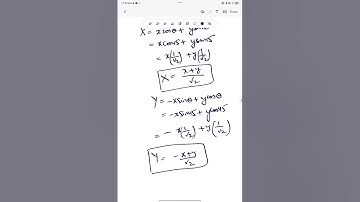 X = xcosθ + ysinθ
= xcos45 + ysin45
= x(1/√2) + y(1/√2)
X = x+y/√2
Y = -xsinθ + ycosθ
= -xsin45 + ycos45
= - x(1/√2) + y(1/√2)
Y = -x+y/√2